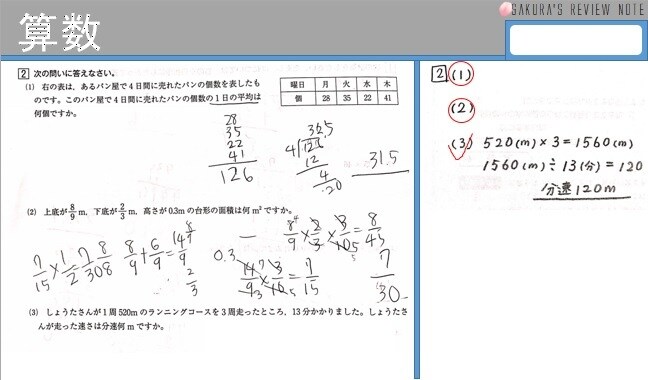 算数
SAKURA'S REVIEW NOTE
2 次の問いに答えなさい。
(1) 右の表は、あるパン屋で4日間に売れたパンの個数を表したも
のです。このパン屋で4日間に売れたパンの個数の1日の平均は
何個ですか。
曜日 月 火 水 木
個 28 35 22 41
28
35
22
41
126
4
12
4
20
31.5
(2) 上底が8/9 m、下底が2/3 m、高さが0.3mの台形の面積は何m²ですか。
8/9 + 6/9 =
0.3
= 8/45
= 7/15
7/15 × 1/2 =
2/3
7/30
(3) しょうたさんが1周520mのランニングコースを3周走ったところ、13分かかりました。しょうたさ
んが走った速さは分速何mですか。
2 (1)
(2)
(3) 520(m)×3=1560(m)
1560(m)÷13(分)=120
分速120m